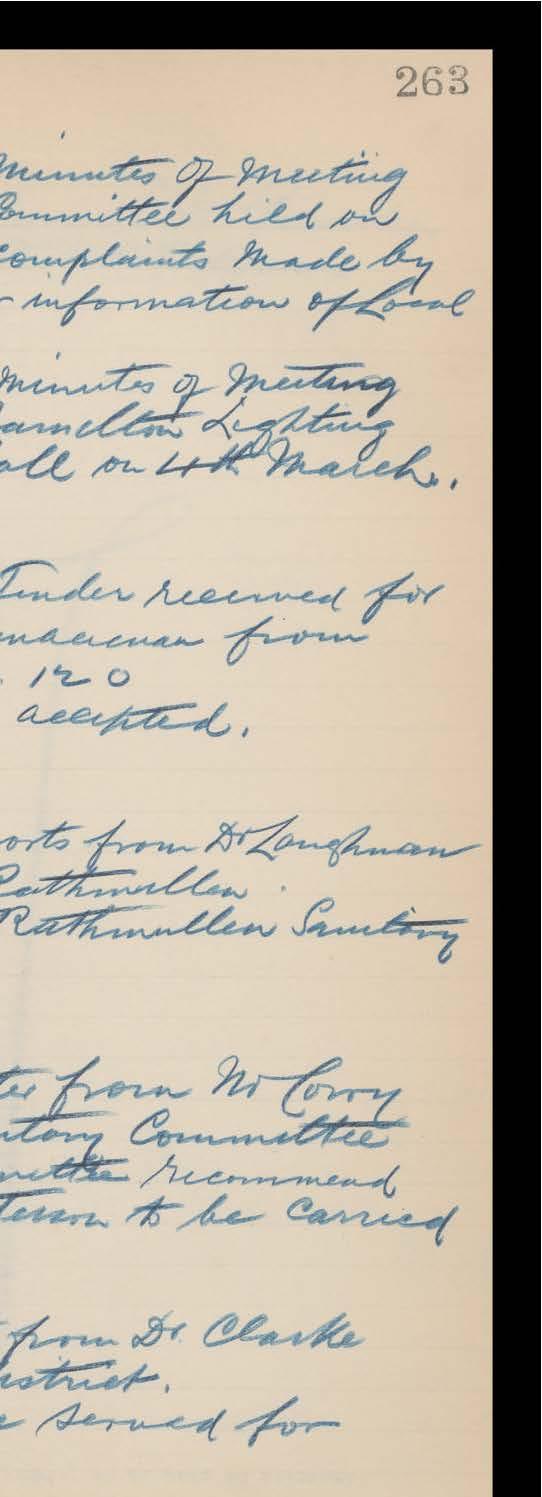 263
Minutes of Meeting
Committee held on
complaints made by
information of Local
Minutes of Meeting
Lighting
all on 4th March.
Tender received for
from
120
accepted.
orts from Dr Loughman
Rathmullen
Rathmullen Sanitary
ter from Mr Corry
Committee
recommend
to be carried
from Dr. Clarke
istrict.
served for